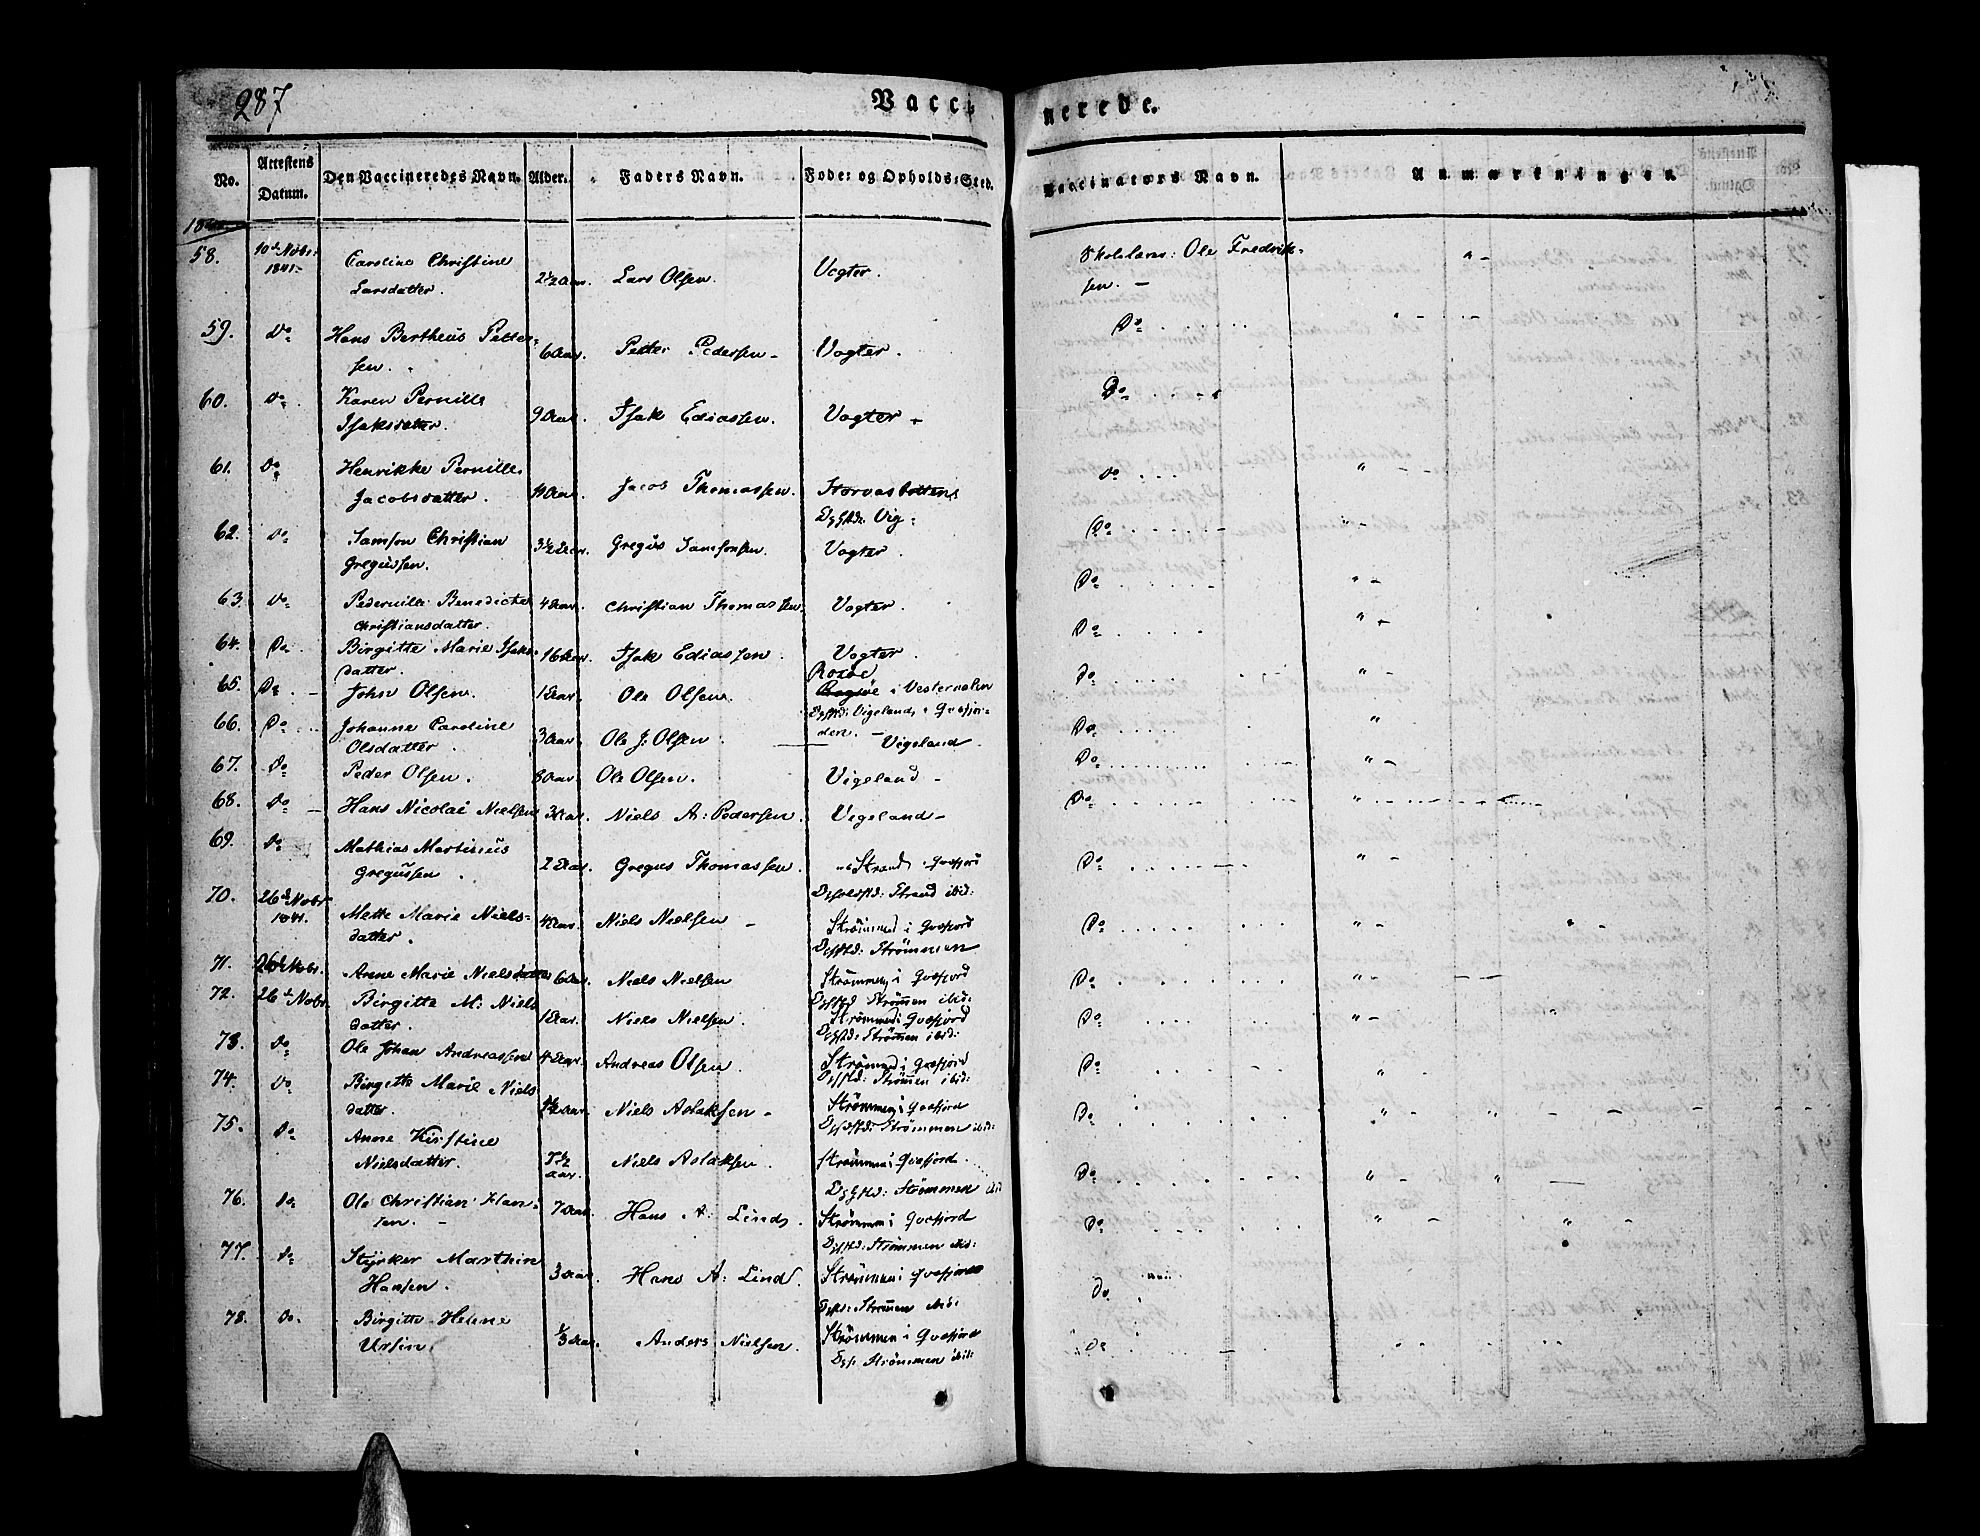 287
Vaccinerede.
No. Attestens Datum. Den Vaccineredes Navn. Alder. Faders Navn. Føde- og Opholds-Sted. Vaccinateurs Navn. Anmærkninger.
58. 10de Nobr. 1841 Caroline Christine Larsdatter. 2½ Aar. Lars Olsen. Vogter. Skolelærer: Ole Fredriksen.
59. Do Hans Bertheus Pettersen. 6 Aar. Petter Pedersen Vogter. Do
60. Do Karen Pernille Isaksdatter. 9 Aar. Isak Ediassen. Vogter Do
61. Do Henrikke Pernille Jacobsdatter. Aar. Jacob Thomassen. Opfstd: Vig Do
62. Do Samson Christian Gregussen. 3½ Aar. Gregus Samsonsen. Vogter. Do
63. Do Benedicte Christiansdatter. 4 Aar. Christian Thomassen Vogter. Do
64. Do Birgitte Marie Isaksdatter. 16 Aar. Isak Ediassen. Vogter. Do
65. Do John Olsen. 1 Aar. Ole Olsen. i Vesteraalen Do
66. Do Johanne Caroline Olsdatter. 3 Aar. Ole J: Olsen. Vigeland Do
67. Do Peder Olsen. 8 Aar. Ole Olsen. Vigeland Do
68. Do Hans Nicolai Nielsen 3 Aar. Niels A: Pedersen. Vigeland Do
69. Do Mathias Martinius Gregussen. 2 Aar. Gregus Thomassen. Strand Qvæfjord Strand ibid: Do
70. 26de Nobr. 1841. Mette Marie Nielsdatter. 4 Aar. Niels Nielsen Strömmen i Qvæfjord Strömmen Do
71. 26de Nobr. Anne Marie Nielsdatter 6 Aar. Niels Nielsen Strömmen i Qvæfjord Strömmen ibid: Do
72. 26de Nobr. Birgitte M: Nielsdatter. 1 Aar. Niels Nielsen. Strömmen i Qvæfjord Strömmen ibid: Do
73. Do Ole Johan Andreassen 4 Aar. Andreas Olsen. Strömmen i Qvæfjord Strömmen ibid: Do
74. Do Birgitte Marie Nielsdatter. Aar. Niels Aslaksen Strömmen i Qvæfjord Strömmen ibid: Do
75. Do Anne Kirstine Nielsdatter. 7½ Aar. Niels Aslaksen. Strömmen i Qvæfjord. Strömmen ibid Do
76. Do Ole Christian Hansen. 7 Aar. Hans A: Lind. Strömmen i Qvæfjord Strömmen ibid: Do
77. Do Styrker Marthin Hansen. 3 Aar. Hans A: Lind. Strömmen i Qvæfjord Strömmen ibid: Do
78. Do Birgitte Helene Ursin. Aar. Anders Nielsen. Strömmen i Qvæfjord Strömmen ibid: Do